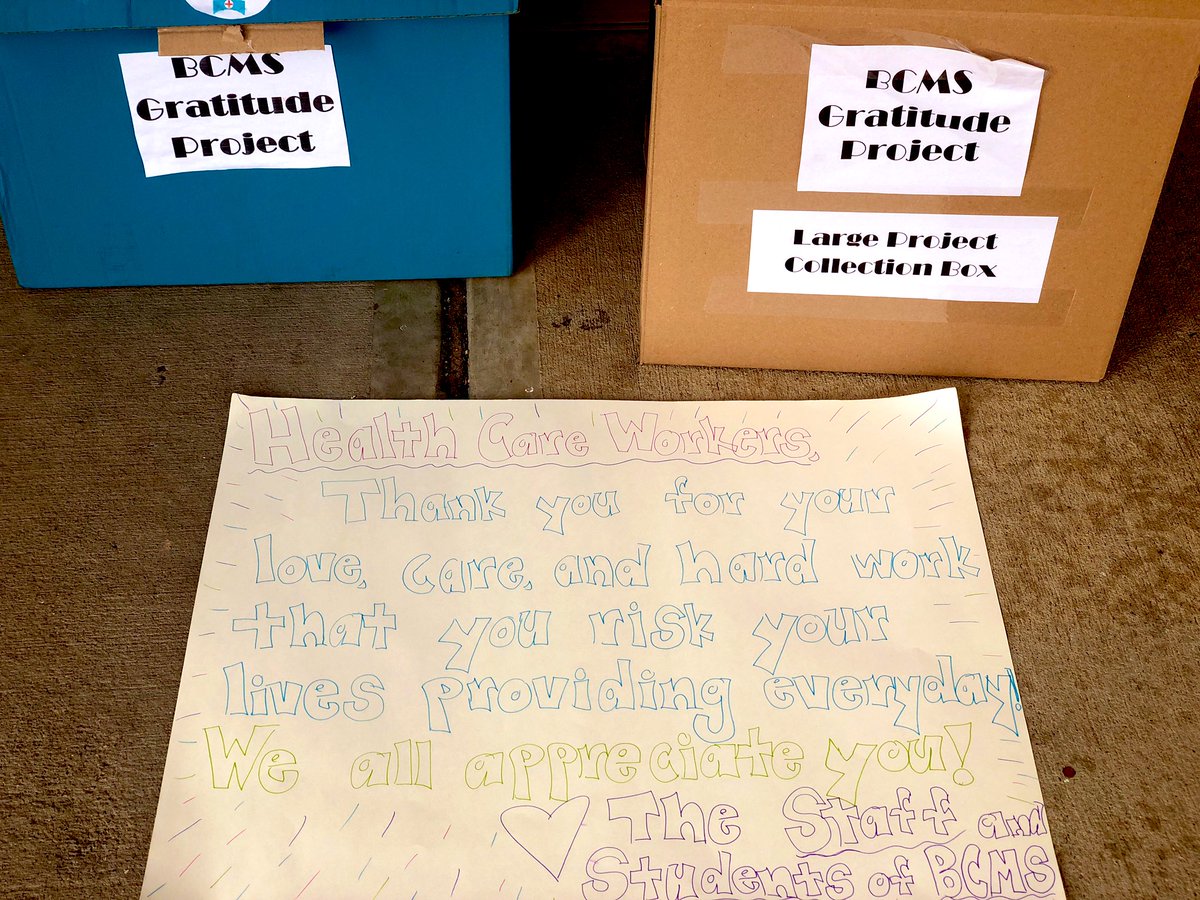 BCMS
Gratitude
Project
BCMS
Gratitude
Project
Large Project
Collection Box
Health Care Workers,
Thank you for your
love, care, and hard work
that you risk your
lives providing everyday!
We all appreciate you!
The Staff and
Students of BCMS